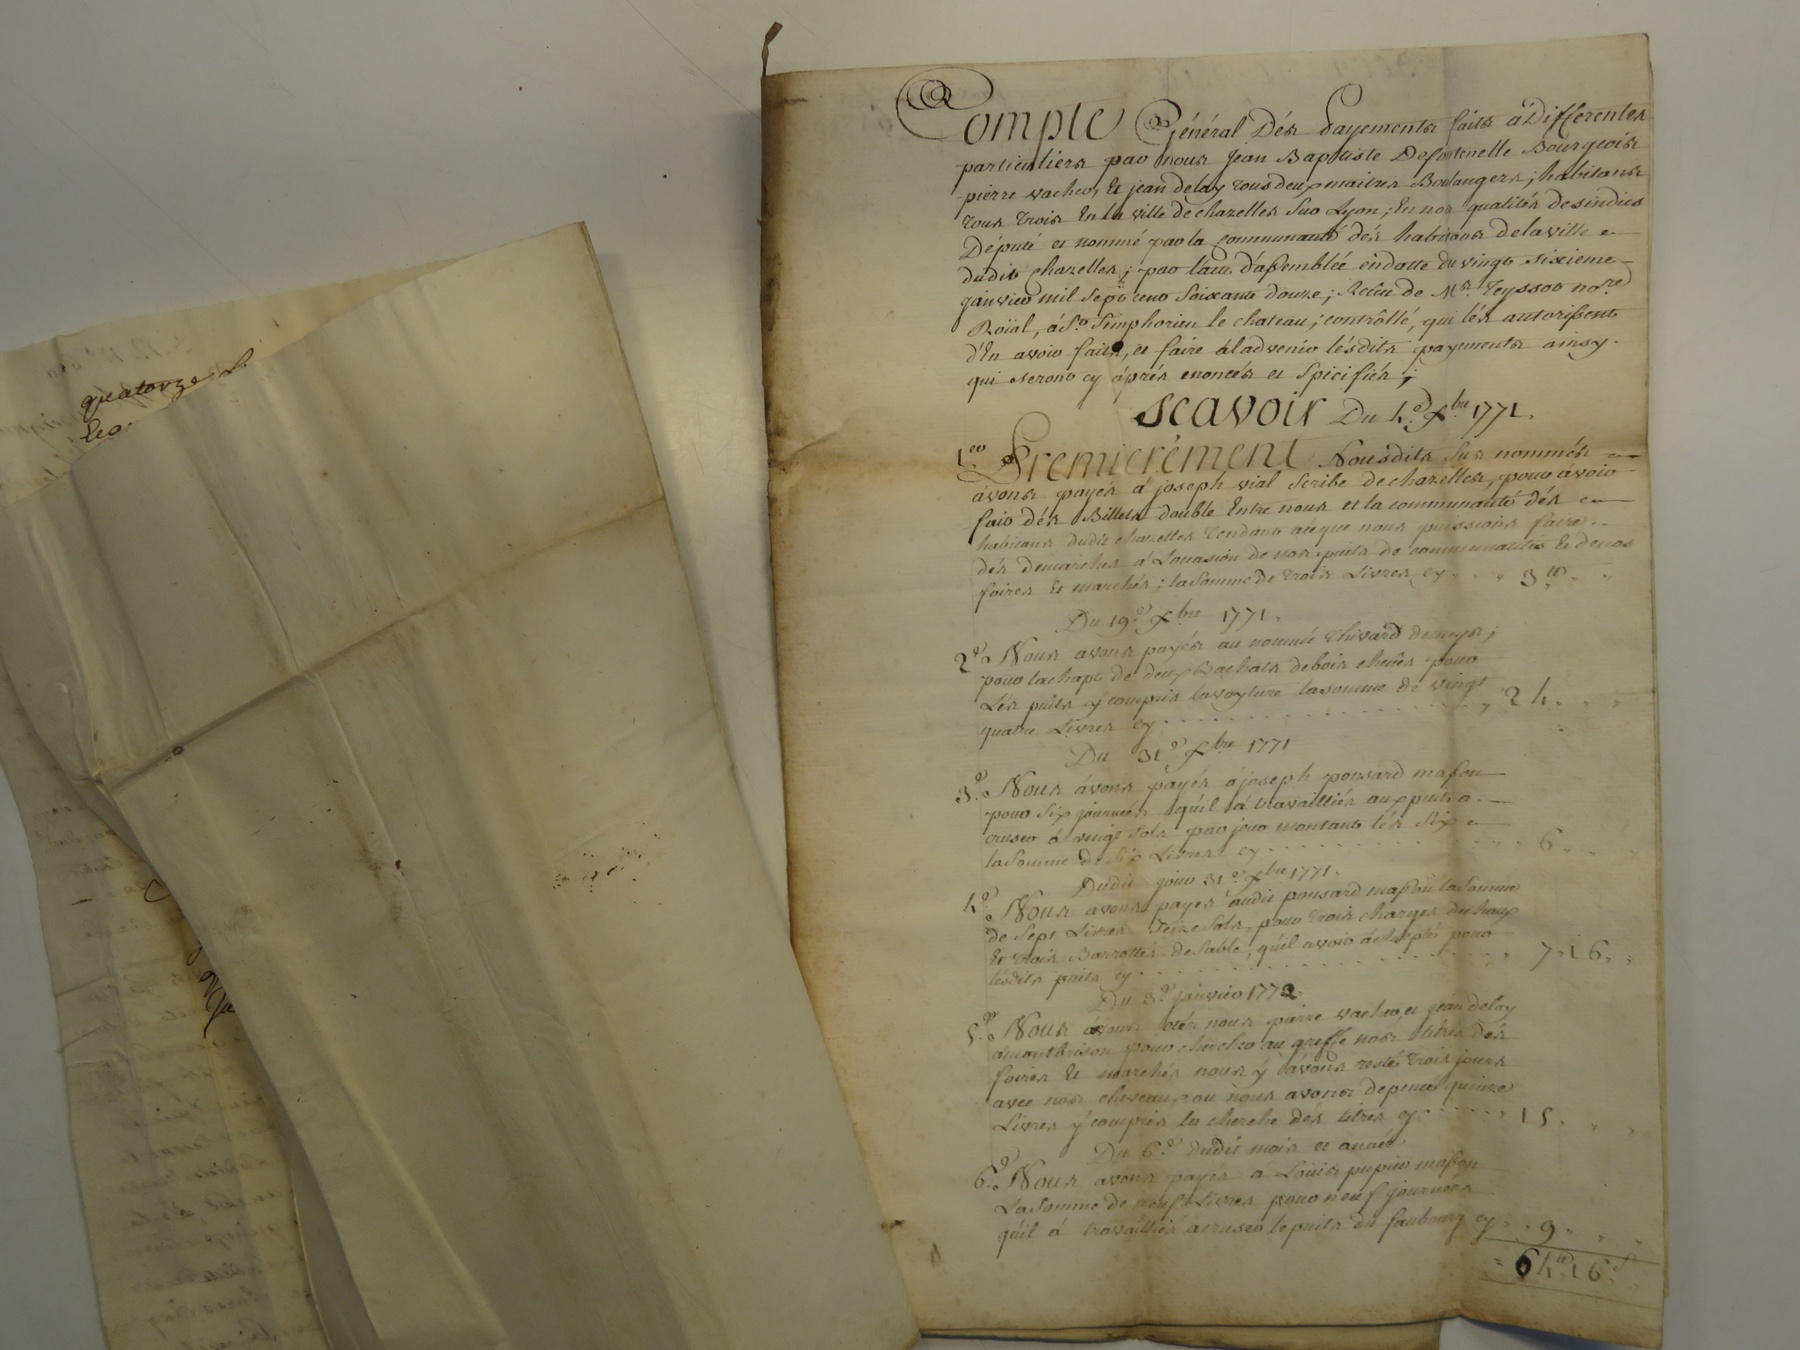 quatorze L
Compte Général Dés Payements faits à Differentes
particuliers par nous Jean Baptiste Defontenelle Bourgeois
pierre vacher, et jean delay tous deux maitres Boulangers; habitans
tous trois En la ville de chazelles Sur Lyon; En nos qualités de sindics
Député et nommé par la communauté dés habitans de la ville
dudit Chazelles; par l'acte d'assemblée en datte du vingt sixieme
janvier mil Sept cent Soixante douze; Reçeu de Mr. Teyssot nore.
Roïal, à St. Simphorien le chateau; contrôllé, qui lés autorisent
d'En avoir faits, et faire à l'advenir lésdits payments ainsy
qui seront cy áprés enoncés et Spicifiés;
SCAVOIR Du 4e. Xbre 1771.
1er Premierément Nousdits Sus nommés
ávons payés á joseph vial Scribe de chazelles, pour ávoir
fait dés Billets double Entre nous et la communauté dés
habitans dudit chazelles tendant aceque nous puissions faire
dés demarches á L'ocasion de nos puits de communautés Et de nos
foires Et marchés; la Somme De trois Livres cy 3ll
Du 19e. Xbre 1771.
2e. Nous avons payés au nommé thivard demeys;
pour lachapt de deux Bachats de bois chenes pour
Lés puits y compris la voyture la somme de vingt
quatre Livres cy 24
Du 31e. Xbre 1771
3e. Nous ávons payés á joseph ponsard masson
pour Six journées qu'il á travailliés aux puits a
cruser á vingt sols par jour montant lés Six
la Somme de Six Livres cy 6
Dudit jour 31e. Xbre 1771.
4e. Nous avons payés audit ponsard masson la Somme
de Sept Livres Seize Sols, pour trois charges de chaux
Et trois Barrottés de Sable, qu'il avoit áchepté pour
lésdits puits cy 7. 16
Du 3e. janvier 1772
5e. Nous ávons étés nous pierre vacher, et jean delay
á montbrison pour chercher au greffe nos titrés dés
foires Et marchés nous y ávons resté trois jours
avec nos chevaux ou nous avons depencé quinze
Livres y compris la cherche dés titres cy 15
Du 6e. dudit mois et année
6e. Nous avons payés a Louis pupier masson
La Somme de neuf Livres pour neuf journées
qu'il á travailliés a cruser le puits du faubourg cy 9
64ll 16s